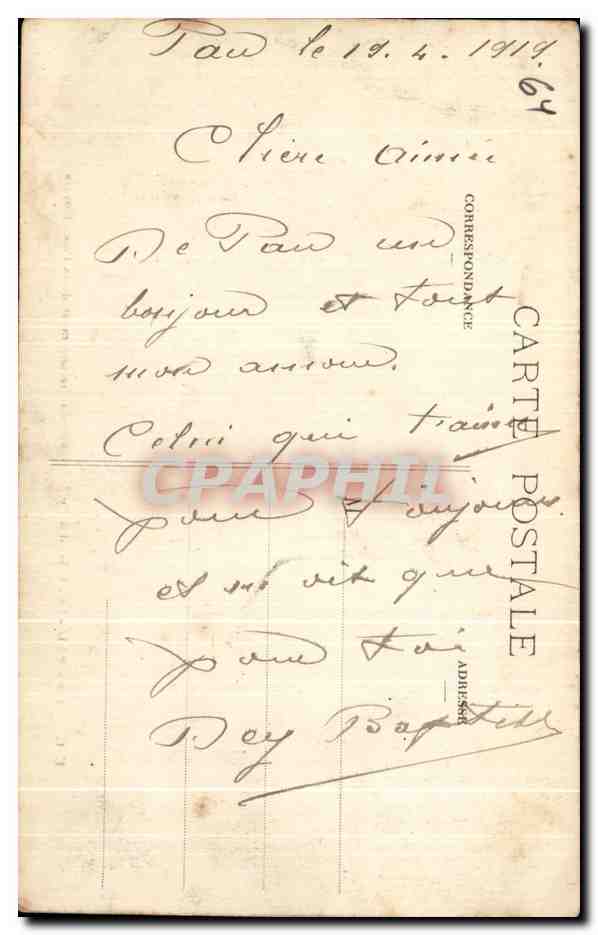 Pau le 19. 4. 1919.
64
Chère aimée
De Pau un
bonjour et tout
mon amour.
Celui qui t'aime
pour toujours
et ne vit que
pour toi
Dey Baptiste
CORRESPONDANCE
CARTE POSTALE
M
ADRESSE
CPAPHIL